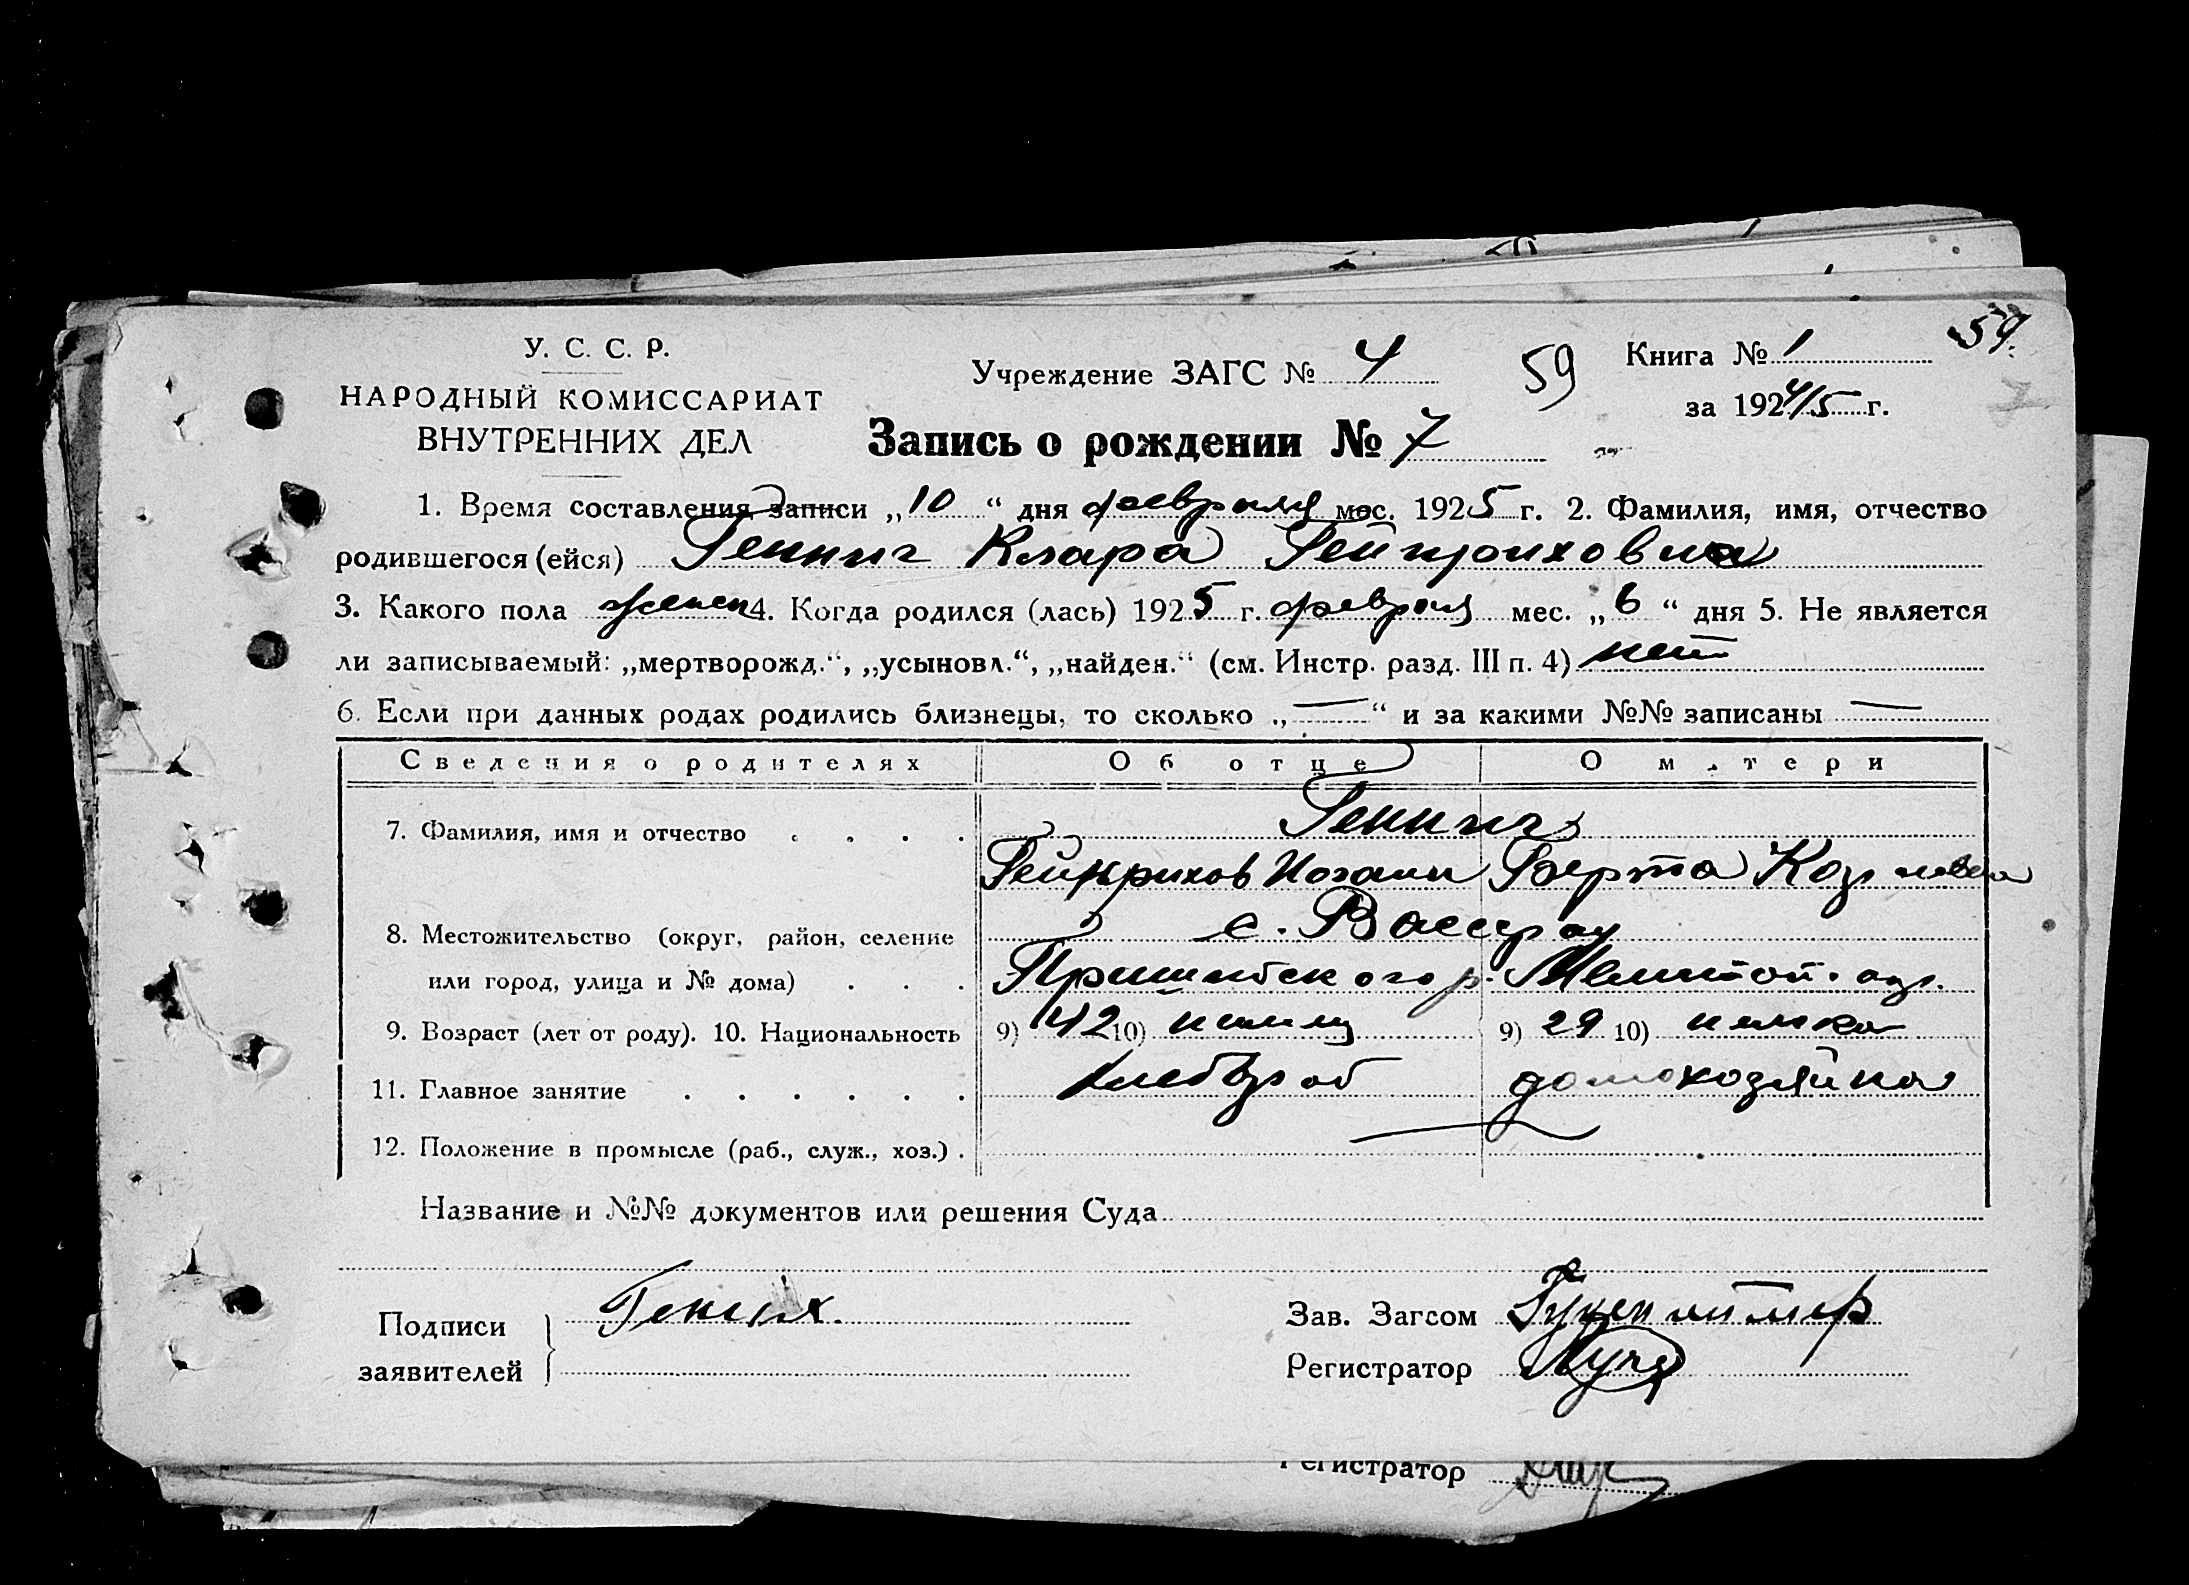 59.
У. С. С. Р.
НАРОДНЫЙ КОМИССАРИАТ
ВНУТРЕННИХ ДЕЛ
Учреждение ЗАГС № 4
59
Книга № 1
за 1924/5 г.
Запись о рождении № 7
1. Время составления записи „10“ дня февраля мес. 1925 г. 2. Фамилия, имя, отчество
родившегося (ейся) Геннинг Клара Гейнриховна
3. Какого пола женск 4. Когда родился (лась) 1925 г. февраля мес. „6“ дня 5. Не является
ли записываемый: „мертворожд.“, „усыновл.“, „найден.“ (см. Инстр. разд. III п. 4) нет
6. Если при данных родах родились близнецы, то сколько „—“ и за какими №№ записаны —
Сведения о родителях Об отце О матери
7. Фамилия, имя и отчество Геннинг
Гейнрихов Иоганн Берта
8. Местожительство (округ, район, селение с. Вассерау
или город, улица и № дома) Пришибского р. Мелитоп. окр.
9. Возраст (лет от роду). 10. Национальность 9) 42 10) немец 9) 29 10) немка
11. Главное занятие хлебороб домохозяйка
12. Положение в промысле (раб., служ., хоз.) .
Название и №№ документов или решения Суда
Подписи
заявителей
Зав. Загсом
Регистратор
Регистратор